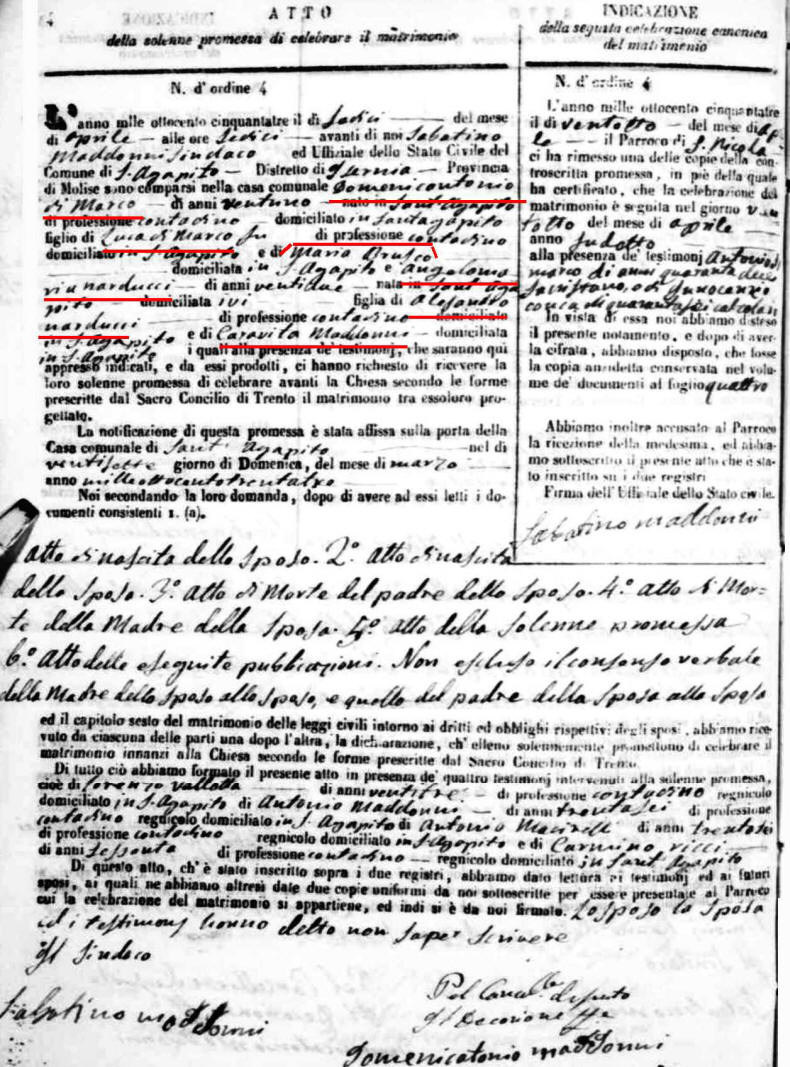 ATTO
della solenne promessa di celebrare il matrimonio
N. d'ordine 4
L'anno mille ottocento cinquantatre il dì sedici del mese
di aprile alle ore sedici avanti di noi Sabatino
Maddonni Sindaco ed Uffiziale dello Stato Civile del
Comune di S. Agapito Distretto di Isernia Provincia
di Molise sono comparsi nella casa comunale Domenicantonio
di Marco di anni ventuno nato in Sant Agapito
di professione contadino domiciliato in Santagapito
figlio di Luca di Marco fu di professione contadino
domiciliato in S. Agapito e di Maria Brusco
domiciliata in S. Agapito e Angelama
ria narducci di anni ventidue nata in Sant Aga
pito domiciliata ivi figlia di Alesandro
narducci di professione contadino domiciliato
in S. Agapito e di Caravita Maddonni domiciliata
in S. Agapito i quali alla presenza de' testimonj, che saranno qui
appresso indicati, e da essi prodotti, ci hanno richiesto di ricevere la
loro solenne promessa di celebrare avanti la Chiesa secondo le forme
prescritte dal Sacro Concilio di Trento il matrimonio tra essoloro pro-
gettato.
La notificazione di questa promessa è stata affissa sulla porta della
Casa comunale di Sant' Agapito nel dì
ventisette giorno di Domenica, del mese di marzo
anno milleottocentotrentatre
Noi secondando la loro domanda, dopo di avere ad essi letti i do-
cumenti consistenti 1. (a).
INDICAZIONE
della seguita celebrazione canonica
del matrimonio
N. d'ordine 4
L'anno mille ottocento cinquantatre
il dì ventotto del mese di ap
le il Parroco di S. Nicola
ci ha rimesso una delle copie della con-
troscritta promessa, in piè della quale
ha certificato, che la celebrazione del
matrimonio è seguita nel giorno ven
totto del mese di aprile
anno sudotto
alla presenza de' testimonj Antonio di
marco di anni quaranta dieci
Sacristano, e di Innocenzio
conca di quarantasei calzolan
In vista di essa noi abbiamo disteso
il presente notamento, e dopo di aver-
la cifrata, abbiamo disposto, che fosse
la copia anzidetta conservata nel volu-
me de' documenti al foglio quattro
Abbiamo inoltre accusato al Parroco
la ricezione della medesima, ed abbia-
mo sottoscritto il presente atto che è sta-
to inscritto su i due registri
Firma dell'Uffiziale dello Stato civile.
Sabatino maddonni
atto di nascita dello Sposo. 2° atto di nascita
della Sposa. 3° atto di Morte del padre dello Sposo. 4° atto di Mor-
te della Madre della Sposa. 5° atto della solenne promessa
6° Atto delle eseguite pubblicazioni. Non escluso il consenso verbale
della Madre dello Sposo allo sposo, e quello del padre della Sposa alla Sposa
ed il capitolo sesto del matrimonio delle leggi civili intorno ai dritti ed obblighi rispettivi degli sposi, abbiamo rice-
vuto da ciascuna delle parti una dopo l'altra, la dichiarazione, ch' elleno solennemente promettono di celebrare il
matrimonio innanzi alla Chiesa secondo le forme prescritte dal Sacro Concilio di Trento.
Di tutto ciò abbiamo formato il presente atto in presenza de' quattro testimonj intervenuti alla solenne promessa,
cioè di Lorenzo vallotta di anni ventitre di professione contadino regnicolo
domiciliato in S. Agapito di Antonio Maddonni di anni trentasei di professione
contadino regnicolo domiciliato in S. Agapito di Antonio di anni trentasei
di professione contadino regnicolo domiciliato in S. Agapito e di Carmino ricci
di anni sessanta di professione contadino regnicolo domiciliato in Sant Agapito
Di questo atto, ch' è stato inscritto sopra i due registri, abbiamo dato lettura ai testimonj ed ai futuri
sposi, ai quali ne abbiamo altresì date due copie uniformi da noi sottoscritte per essere presentate al Parroco
cui la celebrazione del matrimonio si appartiene, ed indi si è da noi firmato. Lo sposo la sposa
ed i testimonj hanno detto non saper scrivere
Il Sindaco
Sabatino maddonni
Pel Cancell.e
Il Decurione
Domenicatonio maddonni